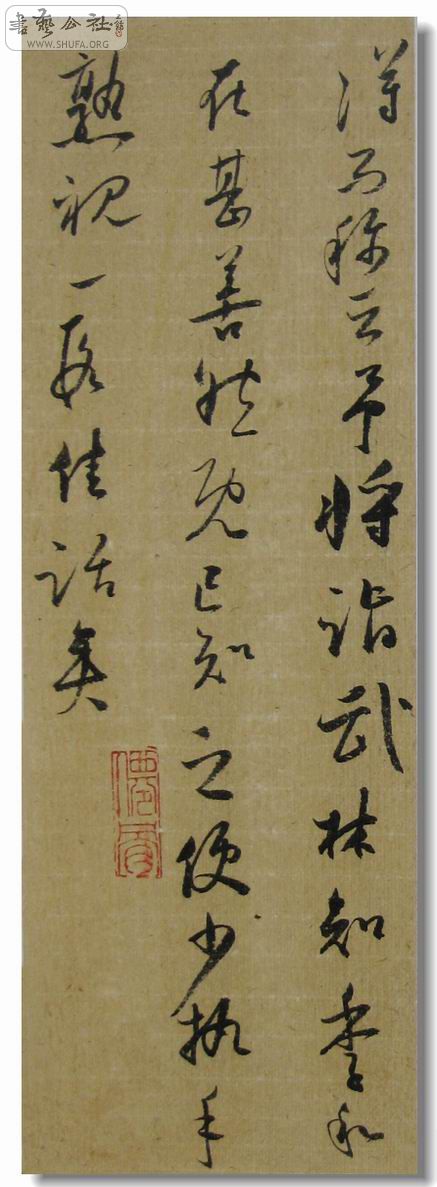 書藝公社
WWW.SHUFA.ORG
得稱云予將詣武林知季和
在甚善然既已知之便少執手
熟視一段佳話矣